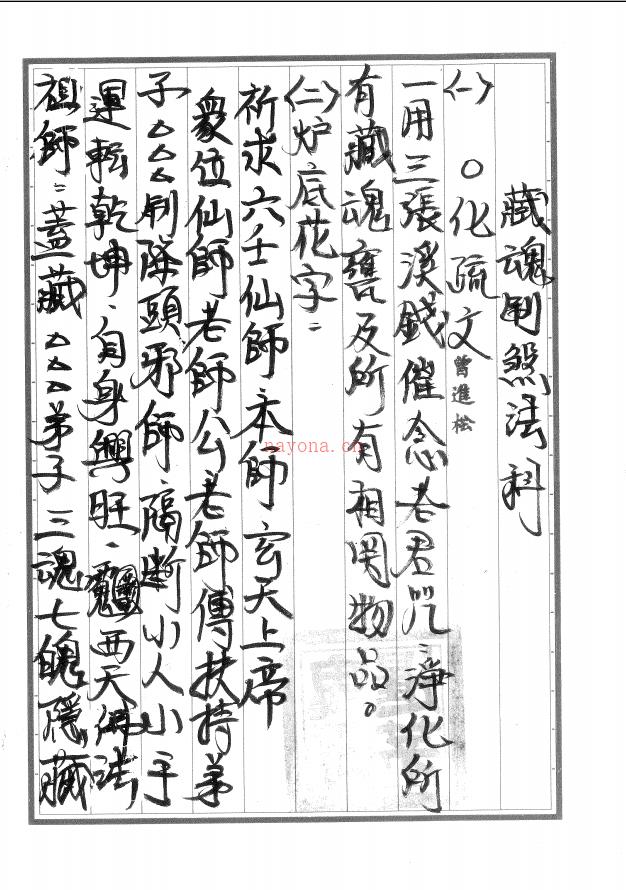 藏魂制煞法科
㈠ 〇化疏文 曾進松
一用三張溪錢催念老君咒:淨化所
有藏魂甕及所有相関物品。
㈡炉底花字:
祈求六壬仙師、本師、玄天上帝
眾位仙師老師公老師傅扶持弟
子△△△制除頭邪師、隔斷小人小手
運転乾坤、自身興旺、西天佛法
祖師:蓋藏△△△弟子三魂七魄隱藏
nayona.cn